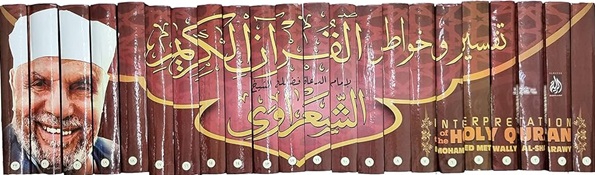 تفسير وخواطر القرآن الكريم
لإمام الدعاة فضيلة الشيخ
الشعراوي
INTERPRETATION
of the HOLY QUR'AN
MOHAMED METWALLY AL-SHARAWY